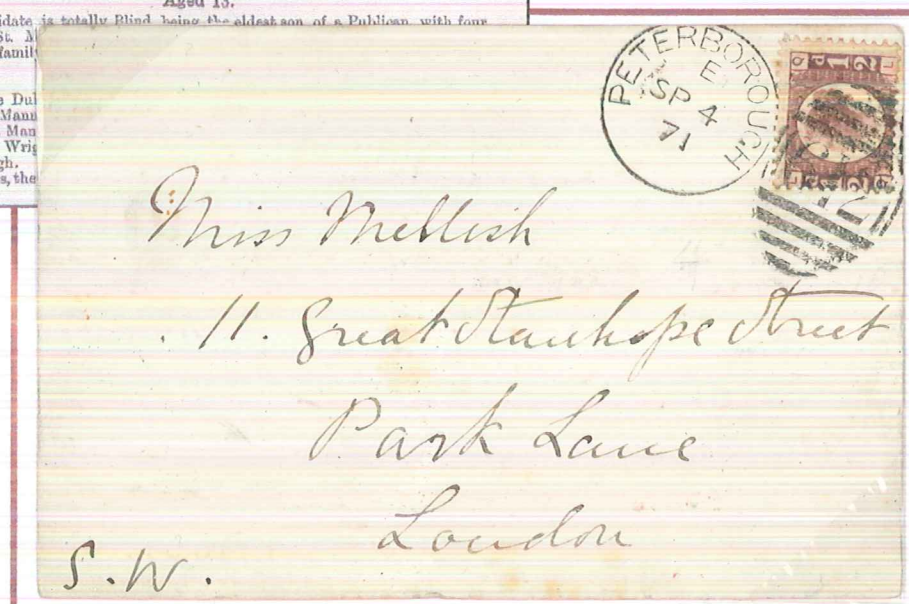 Aged 13.
idate is totally Blind being the eldest son of a Publican with four
St. M
family
e Dul
Mann
Man
Wrig
gh.
s, the
PETERBOROUGH
E
SP 4
71
Miss Mellish
. 11. Great Stanhope Street
Park Lane
London
S.W.